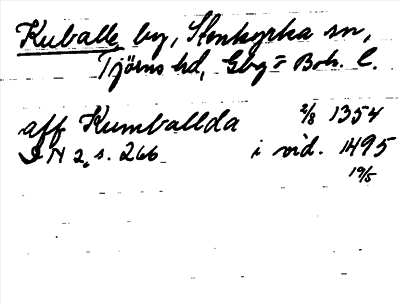 Kuballe by, Stenkyrka sn,
Tjörns hd, Gbg = Boh. l.
aff Kumballda 2/8 1354
DN 2, s. 266 i vid. 1495
19/5